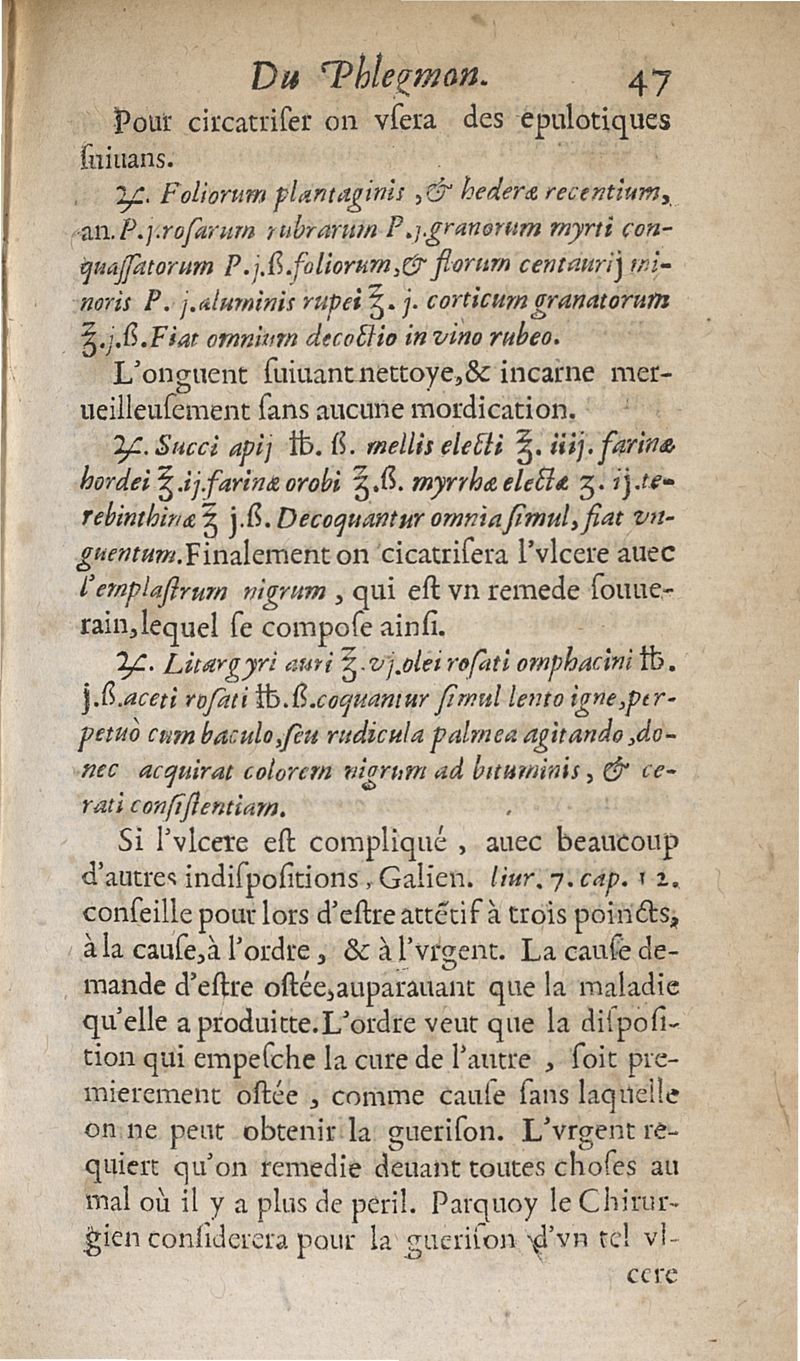 Du Phlegmon. 47
Pour circatriſer on vſera des epulotiques
ſuiuans.
℞. Foliorum plantaginis, & hederæ recentium,
an. P.j.roſarum rubrarum P.j.granorum myrti con-
quaſſatorum P.j.ß.foliorum,& florum centaurij mi-
noris P. j.aluminis rupei ℥. j. corticum granatorum
℥.j.ß.Fiat omnium decoctio in vino rubeo.
L'onguent ſuiuant nettoye,& incarne mer-
ueilleuſement ſans aucune mordication.
℞. Succi apij ℔. ß. mellis electi ℥. iiij. farinæ
hordei ℥.ij.farinæ orobi ℥.ß. myrrhæ electæ ʒ. ij.te-
rebinthinæ ℥ j.ß. Decoquantur omnia ſimul, fiat vn-
guentum.Finalement on cicatriſera l'vlcere auec
l'emplaſtrum nigrum, qui eſt vn remede ſouue-
rain,lequel ſe compoſe ainſi.
℞. Litargyri auri ℥.vj.olei roſati omphacini ℔.
j.ß.aceti roſati ℔.ß.coquantur ſimul lento igne,per-
petuò cum baculo,ſeu rudicula palmea agitando,do-
nec acquirat colorem nigrum ad bituminis, & ce-
rati conſiſtentiam.
Si l'vlcere eſt compliqué, auec beaucoup
d'autres indiſpoſitions, Galien. liur. 7. cap. 12.
conſeille pour lors d'eſtre attẽtif à trois poincts,
à la cauſe,à l'ordre, & à l'vrgent. La cauſe de-
mande d'eſtre oſtée,auparauant que la maladie
qu'elle a produitte.L'ordre veut que la diſpoſi-
tion qui empeſche la cure de l'autre, ſoit pre-
mierement oſtée, comme cauſe ſans laquelle
on ne peut obtenir la gueriſon. L'vrgent re-
quiert qu'on remedie deuant toutes choſes au
mal où il y a plus de peril. Parquoy le Chirur-
gien conſiderera pour la gueriſon d'vn tel vl-
cere